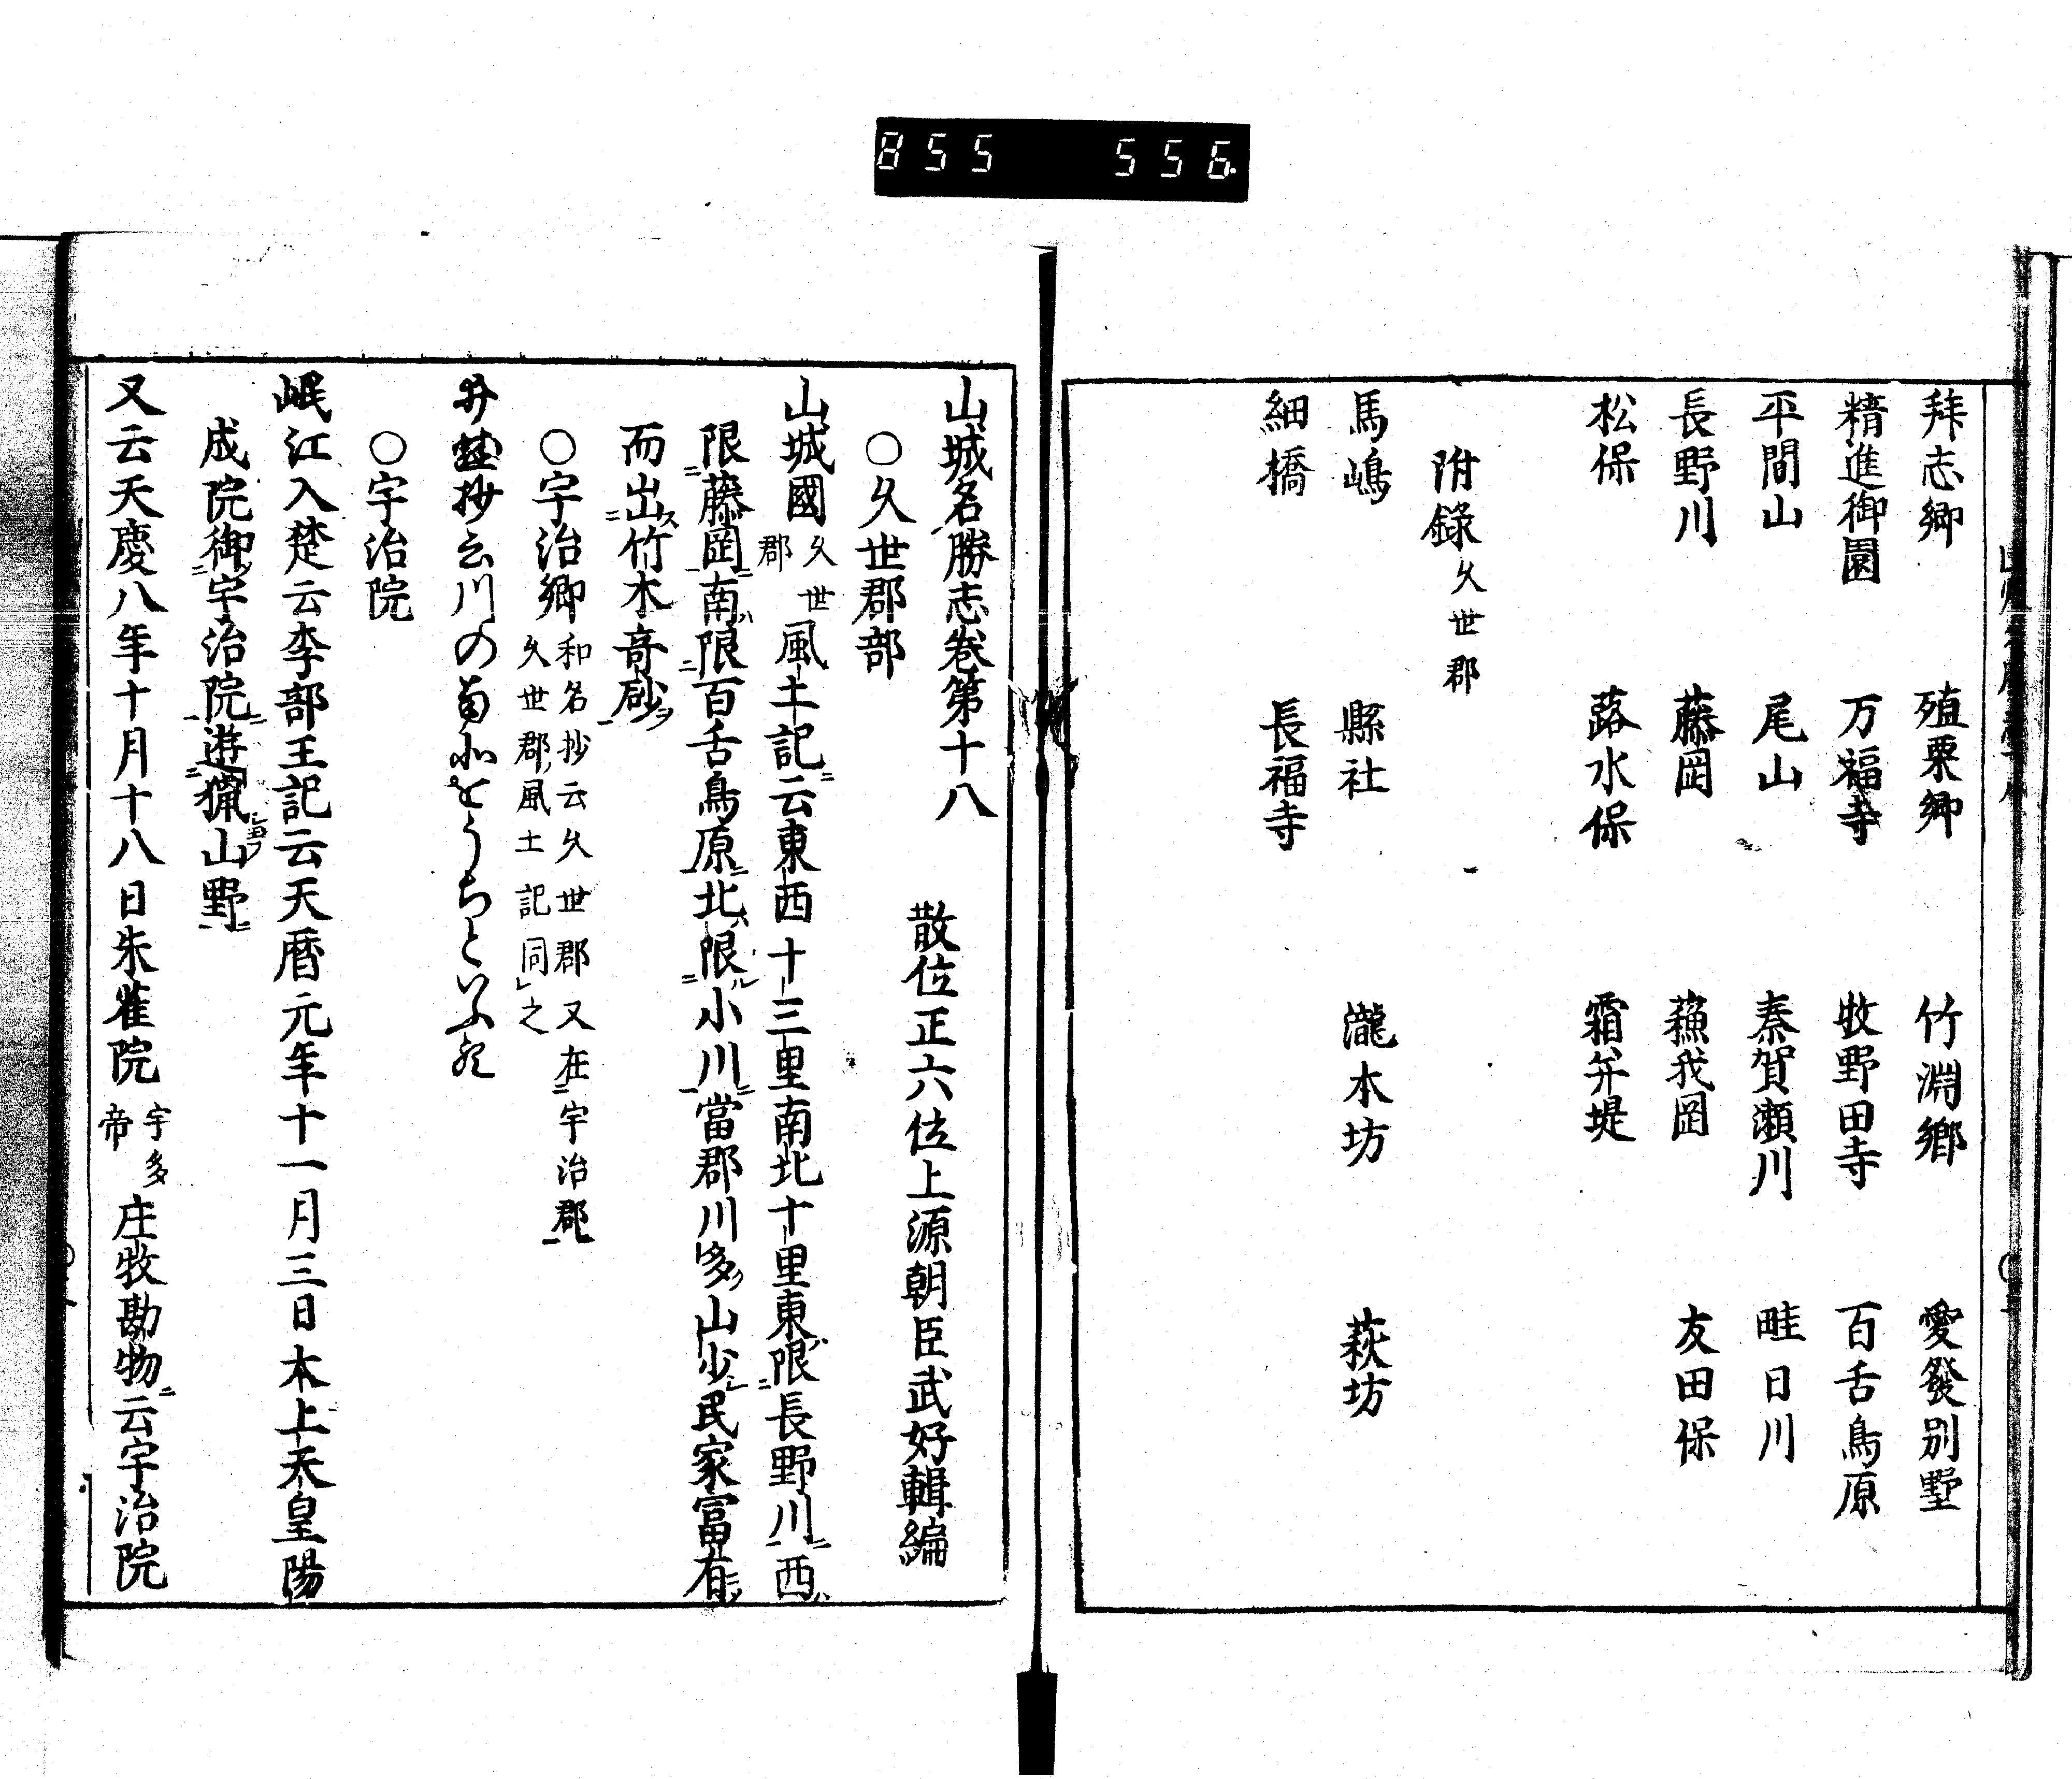 855 556
拜志郷 殖栗郷 竹淵郷 愛發別墅
精進御園 万福寺 牧野田寺 百舌鳥原
平間山 尾山 秦賀瀬川 畦日川
長野川 藤岡 蘓我岡 友田保
松保 蕗水保 霜弁堤
附錄久世郡
馬嶋 縣社 瀧本坊 萩坊
細橋 長福寺
山城名勝志巻第十八
散位正六位上源朝臣武好輯編
○久世郡部
山城國久世郡風土記云東西十三里南北十里東限長野川西
限藤岡南限百舌鳥原北限小川當郡川多山少民家冨有
而出竹木竒砂
○宇治郷和名抄云久世郡又在宇治郡
久世郡風土記同之
井蛙抄云川の南北をうちといふ
○宇治院
岷江入楚云李部王記云天暦元年十一月三日本上天皇陽
成院御宇治院遊獵山野
又云天慶八年十月十八日朱雀院宇多帝庄牧勘物云宇治院